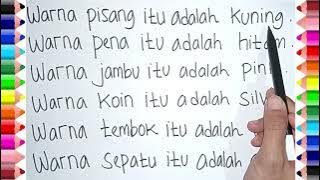 Warna pisang itu adalah Kuning.
Warna pena itu adalah hitam.
Warna jambu itu adalah pin
Warna Koin itu adalah Silv
Warna tembok itu adalah
Warna sepatu itu adalah